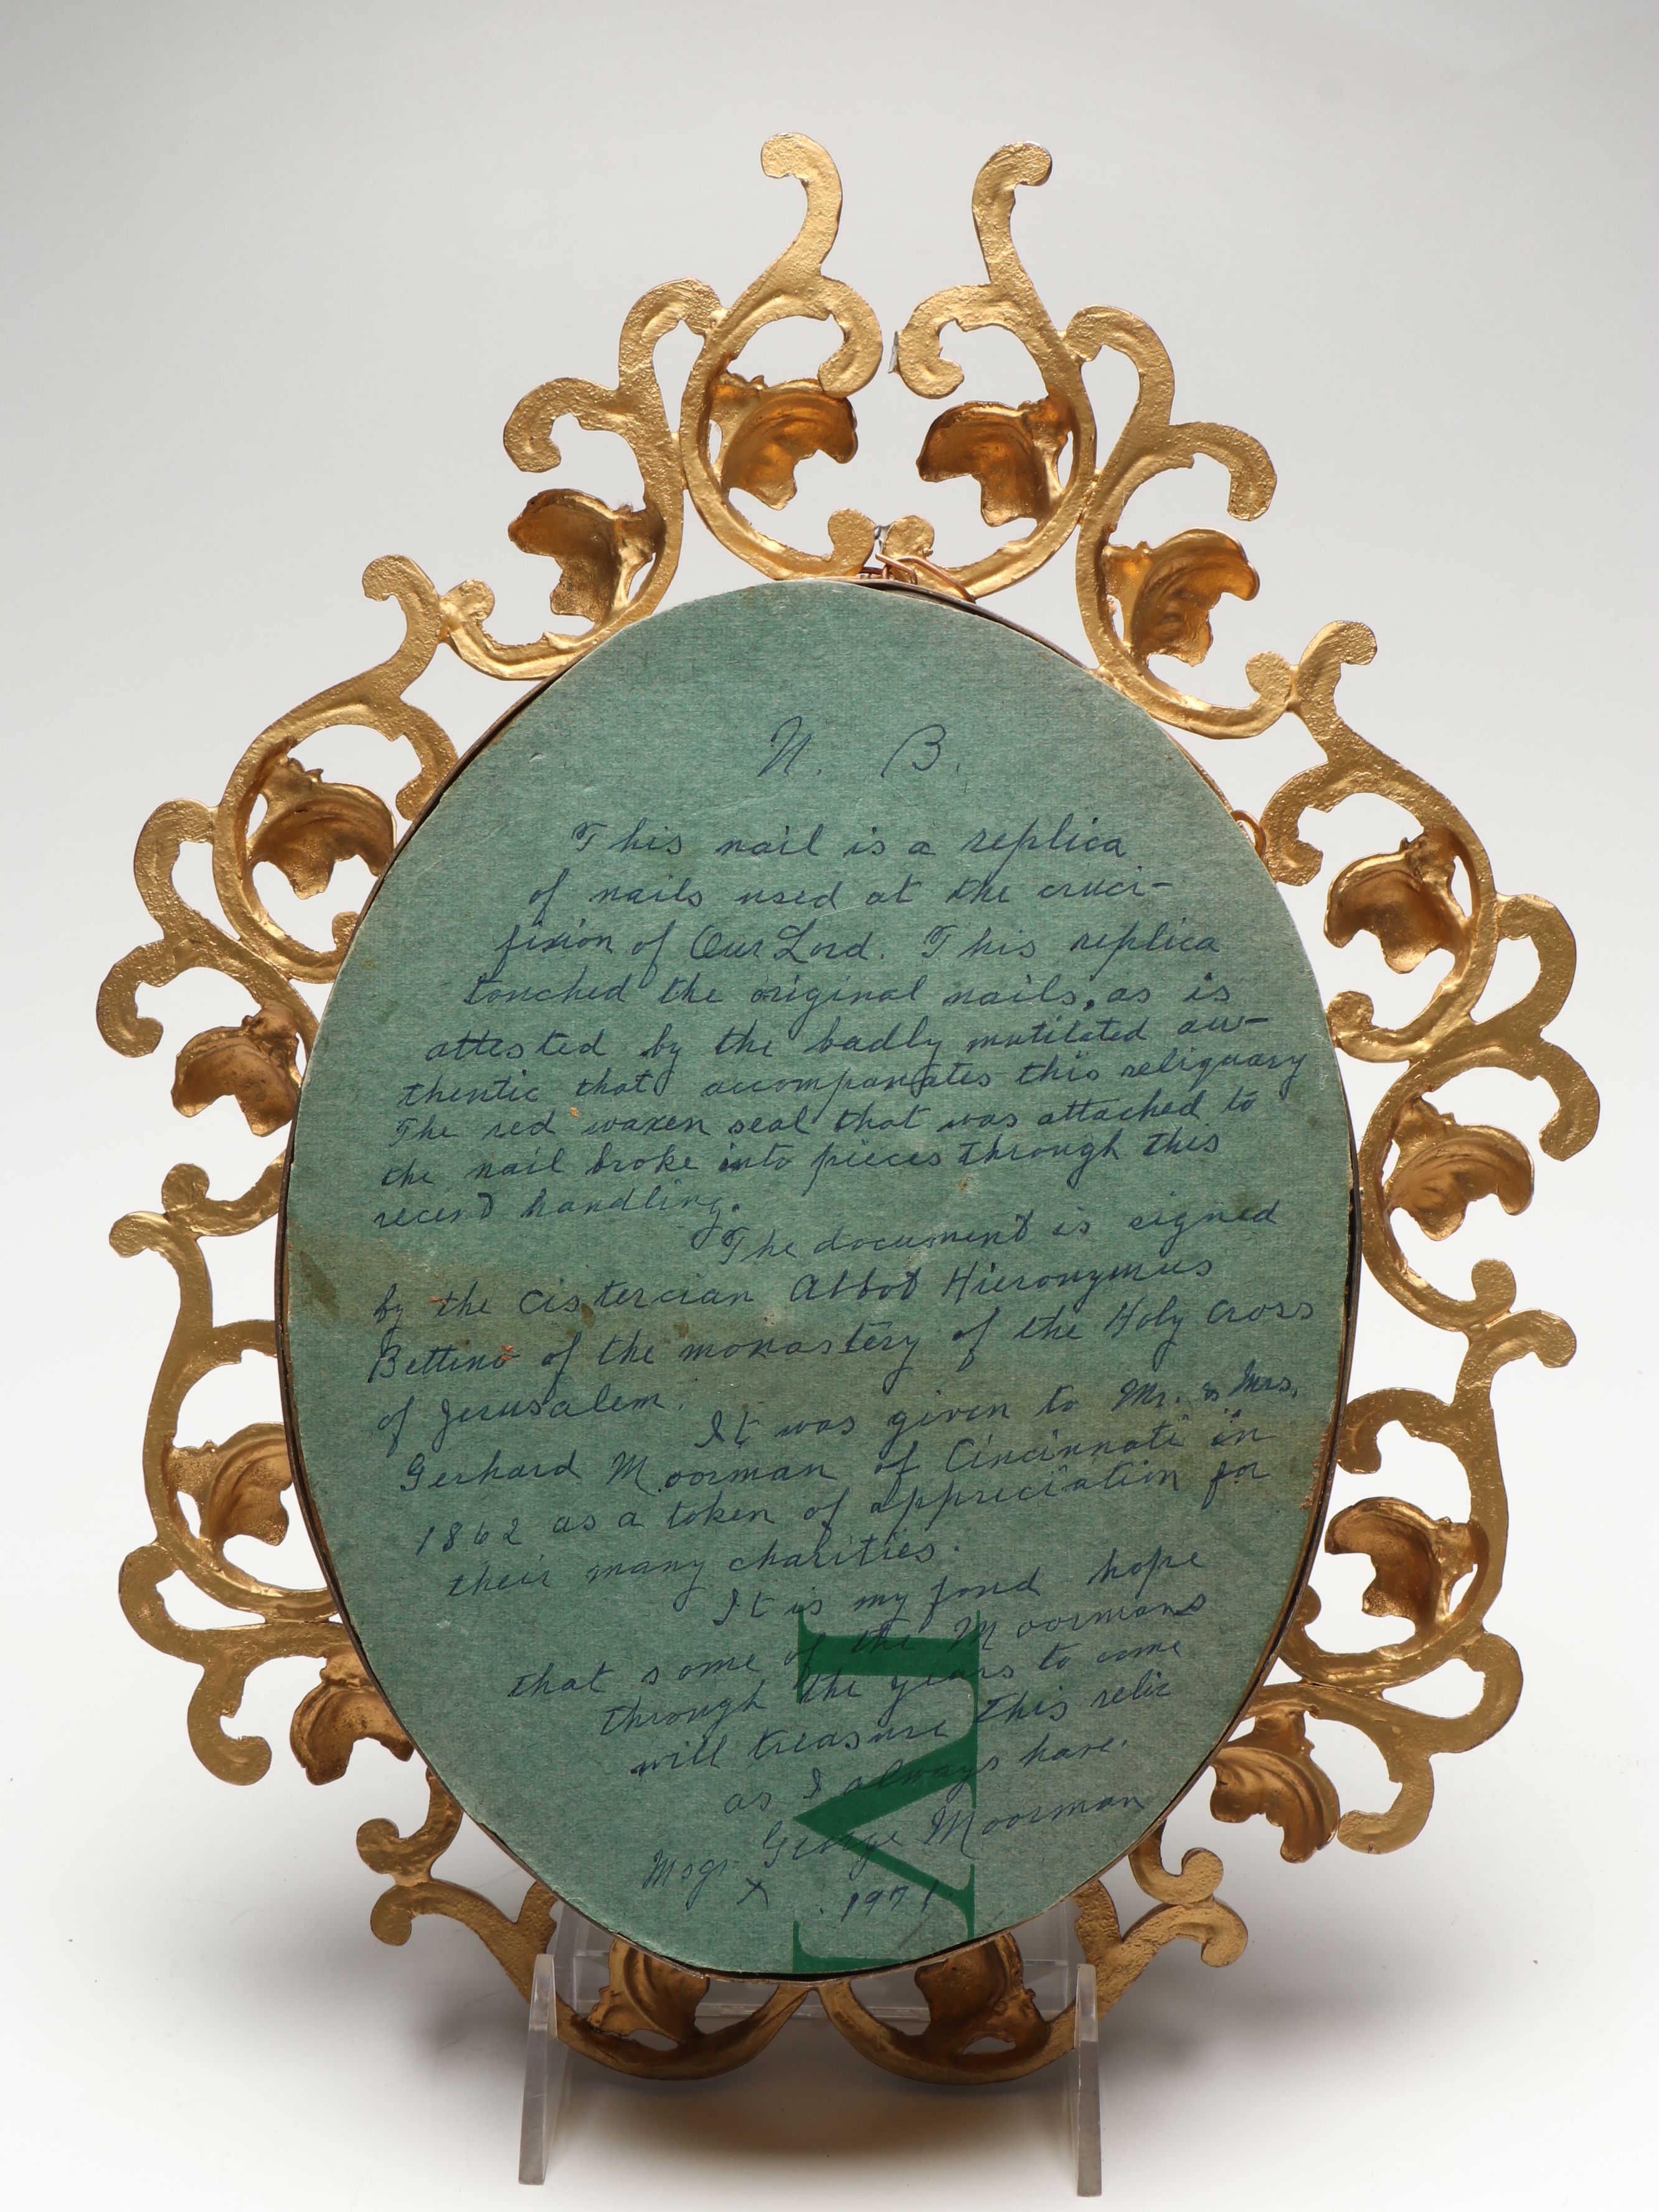 N. B.
This nail is a replica
of nails used at the cruci-
fixion of Our Lord. This replica
touched the original nails, as is
attested by the badly mutilated au-
thentic that accompanates this reliquary
The red waxen seal that was attached to
the nail broke into pieces through this
recent handling.
The document is signed
by the Cistercian Abbot Hieronymus
Bettino of the monastery of the Holy Cross
of Jerusalem.
It was given to Mr. & Mrs.
Gerhard Moorman of Cincinnati in
1862 as a token of appreciation for
their many charities.
It is my fond hope
that some of the Moormans
through the years to come
will treasure this relic
as I always have.
Msgr. George Moorman
1971